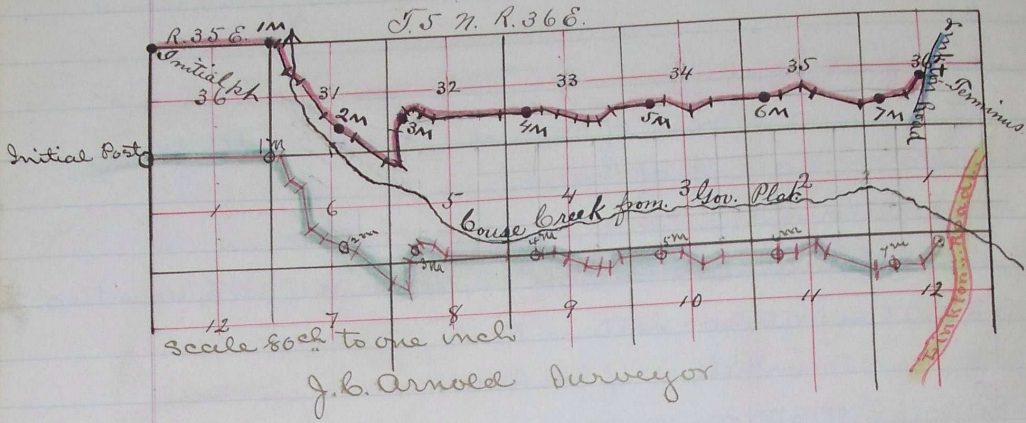 R. 35 E. 1M T. 5 N. R. 36 E.
Initial ph
36 31 32 33 34 35 36
2M 3M 4M 5M 6M 7M
Linkton Road
Terminus
Initial Post 1M
1 6 5 4 3 2 1
Couse Creek from Gov. Plat
2M 3M 4M 5M M 7M
12 7 8 9 10 11 12
Linkton Road
Scale 80ch to one inch
J. C. Arnold Surveyor